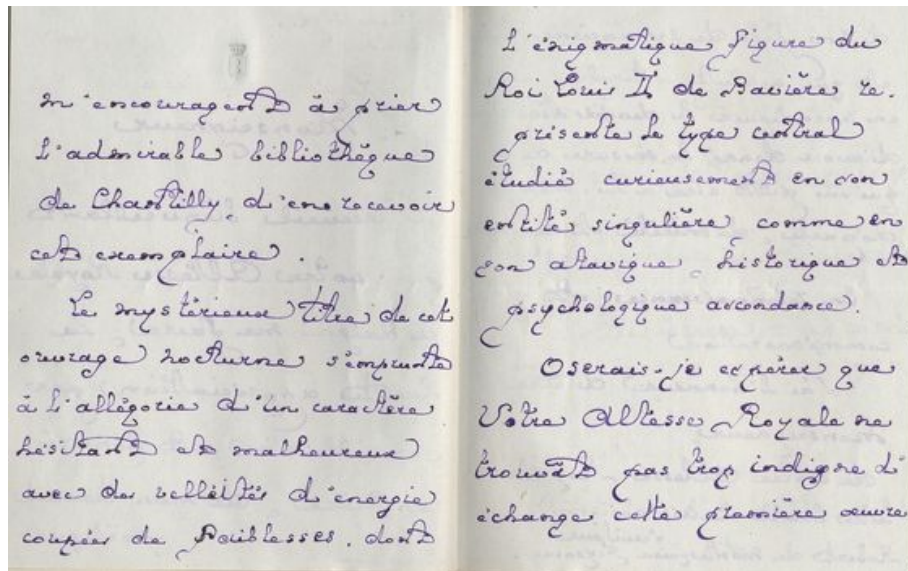 m'encouragent à prier
l'admirable bibliothèque
de Chantilly d'en recevoir
cet exemplaire.
Le mystérieux titre de cet
ouvrage nocturne s'emprunte
à l'allégorie d'un caractère
hésitant et malheureux
avec des velléités d'énergie
coupées de faiblesses, dont
L'énigmatique figure du
Roi Louis II de Bavière re-
présente le type central
étudié curieusement en son
entité singulière comme en
son atavique, historique et
psychologique
Oserais-je espérer que
Votre Altesse Royale ne
trouvât pas trop indigne d'
échange, cette première œuvre